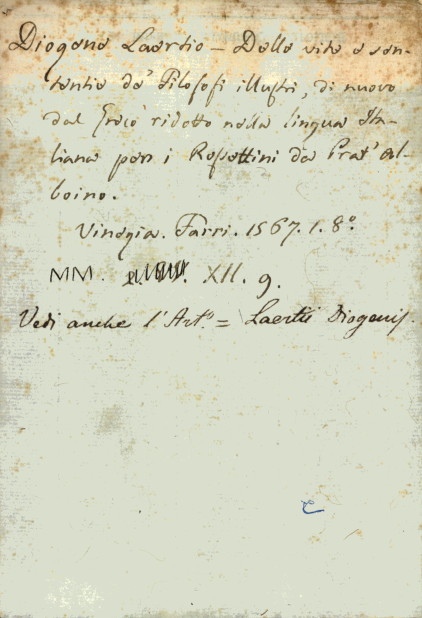 Diogene Laertio – Delle vite e sen-
tentie de' Filosofi illustri, di nuovo
dal Greco ridotte nella lingua Ita-
liana per i Rosettini da Prat' Al-
boino.
Vinegia. Farri. 1567. 1. 8º.
MM. XII. 9.
Vedi anche l'Art.º = Laertii Diogenis.